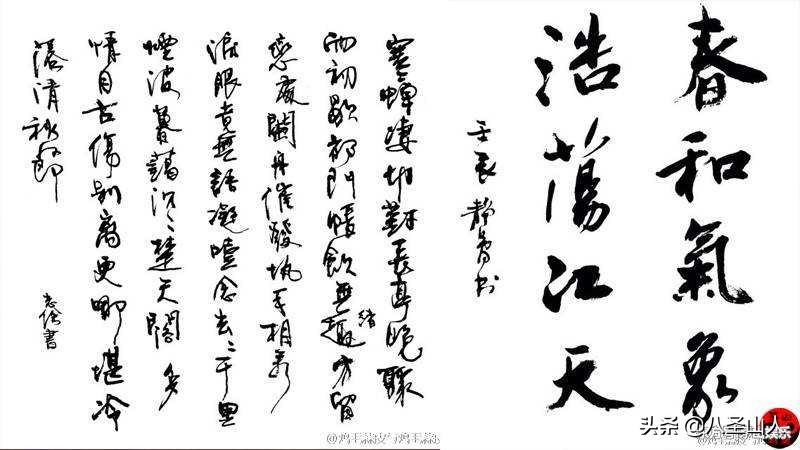 寒蟬淒切對長亭晚驟
雨初歇都門帳飲無趣方留
緒
戀處闌舟催發執手相看
淚眼竟無語凝噎念去々千里
煙波暮靄沉々楚天闊多
情自古傷別離更哪堪冷
落清秋節
書
春和氣象
浩蕩江天
壬辰靜蕾書
@鸡毛蒜皮与鸡毛蒜
头条 @八圣山人